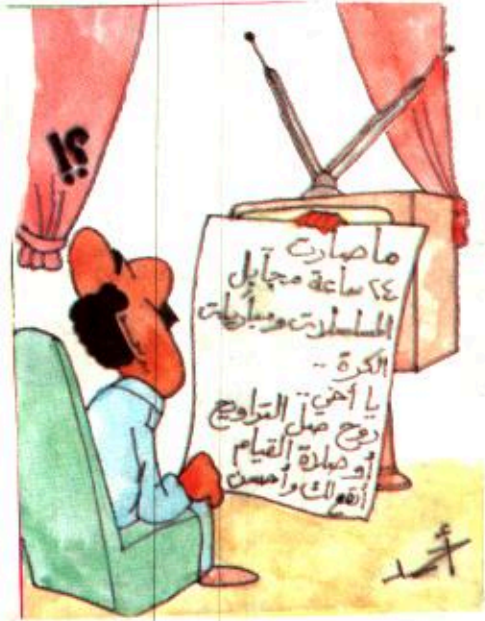 ؟!
ما صارت
٢٤ ساعة مجابل
المسلسلات ومباريات
الكرة ..
يا أخي ..
روح صل التراويح
أو صلاة القيام
أنفع لك وأحسن